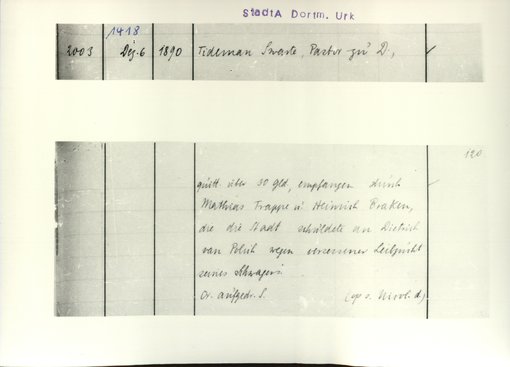 StadtA Dortm. Urk
1418
2003 Dez. 6 1890 Tideman Swarte, Pastor zu D.,
120
quitt. über 30 gld, empfangen durch
Mathias Trappe u. Heinrich Braken,
die die Stadt schuldete an Dietrich
van Polich wegen versessener Leibzucht
seines Schwagers.
Or. aufgedr. S.